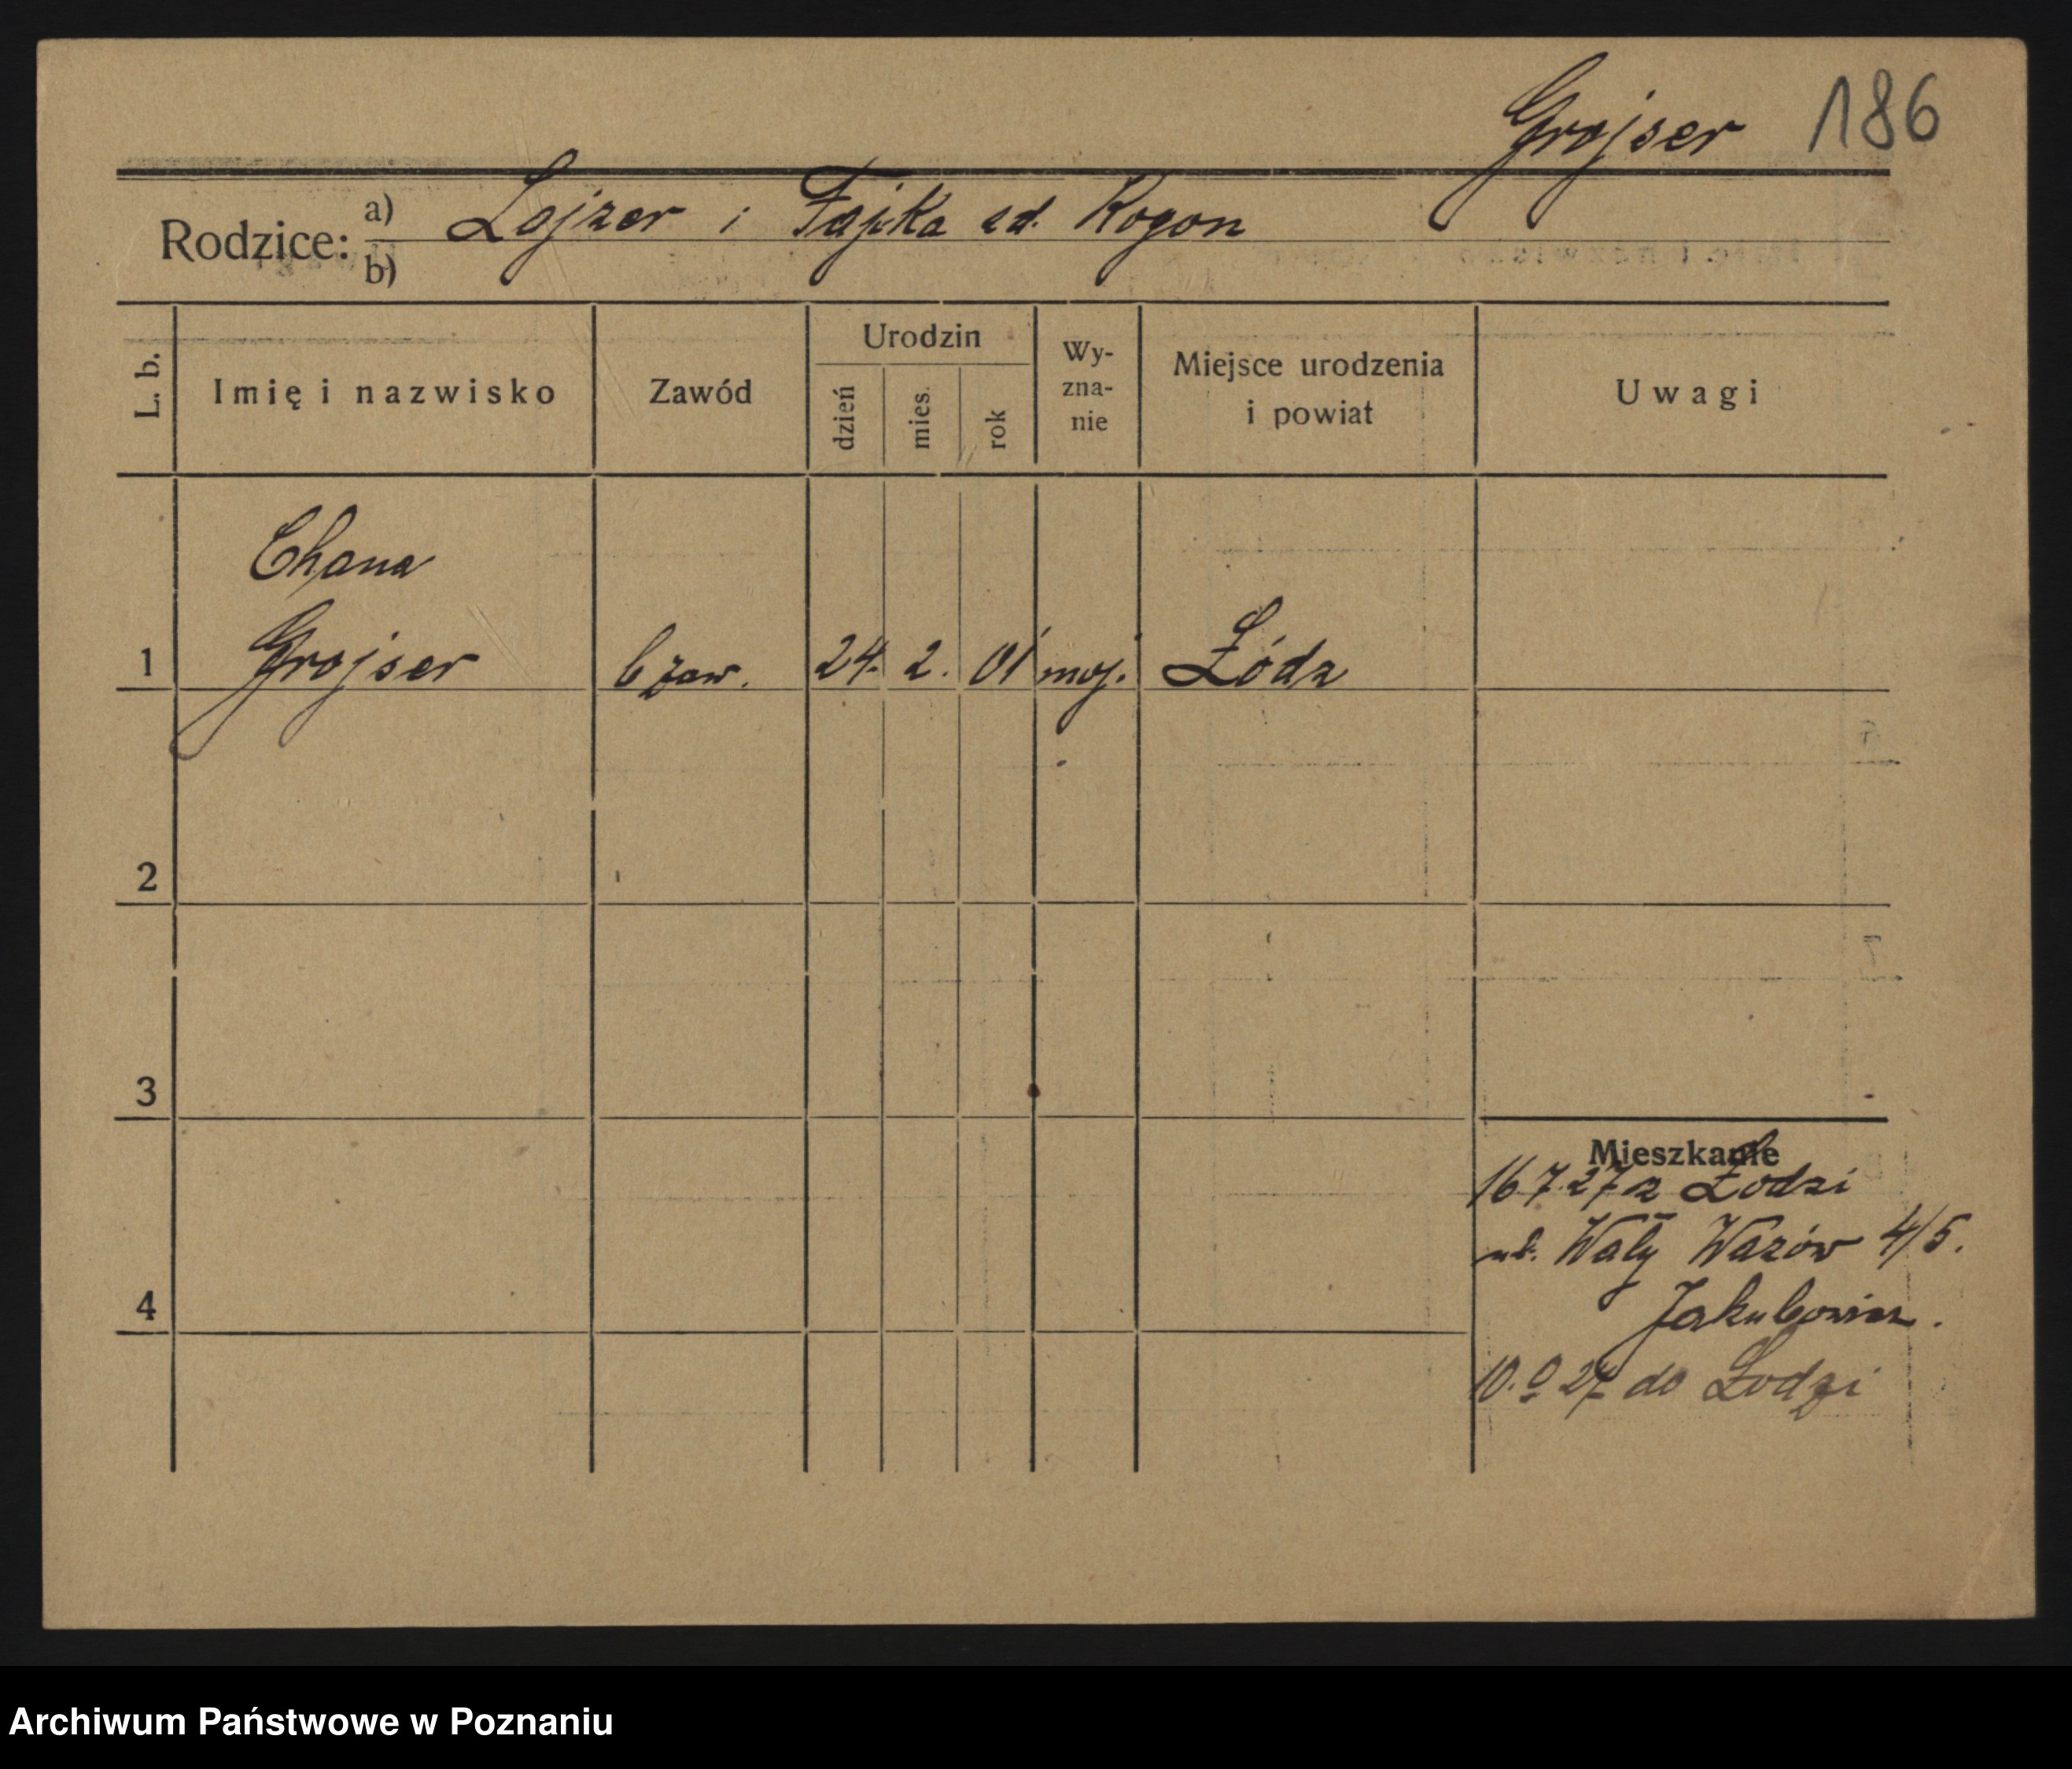 Grojser 186
Rodzice: a) Lajzer i Fajka zd. Kogon
b)
L. b. Imię i nazwisko Zawód Urodzin dzień mies. rok Wy-
zna-
nie Miejsce urodzenia
i powiat Uwagi
Chana
1 Grojser b zaw. 24. 2. 01 moj. Łódz
2
3
Mieszkanie
16 7. 27 z Łodzi
ul. Wały Wazów 4/5.
4 Jakubowicz.
10. 9 27 do Łodzi
Archiwum Państwowe w Poznaniu